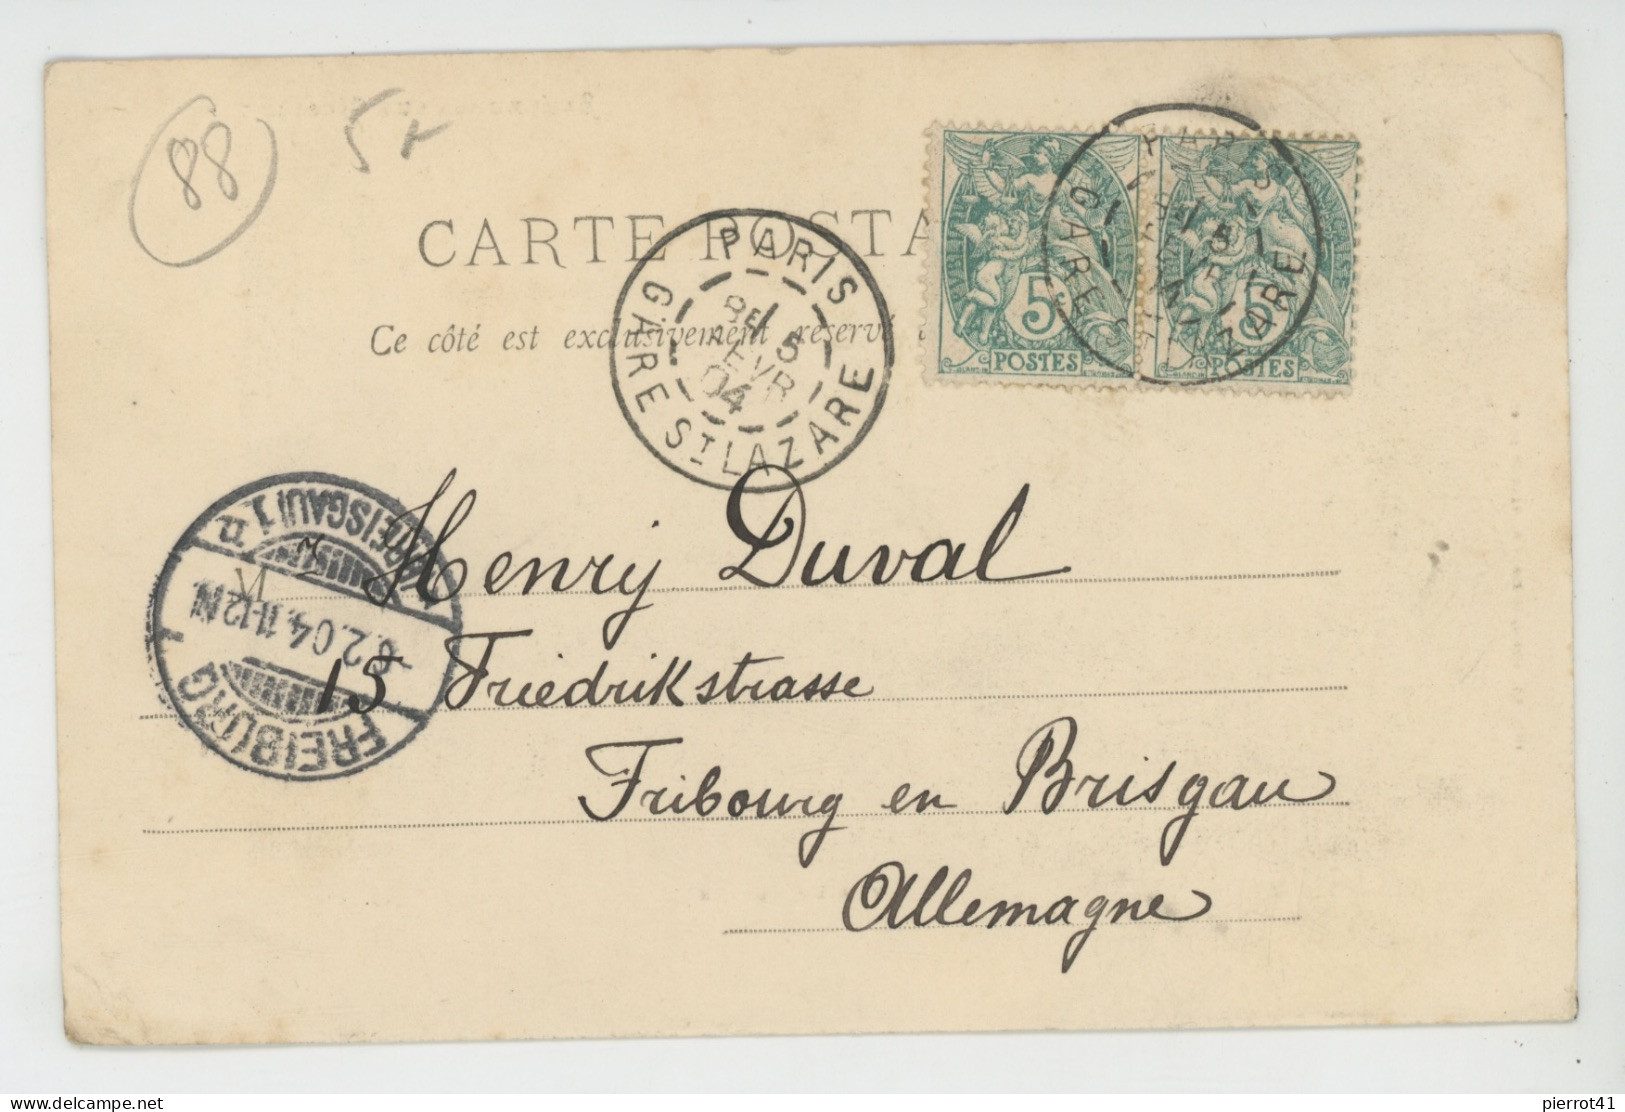 88
5
CARTE POSTA
Ce côté est exclusivement réservé
PARIS
8E 5
FEVR
04
GARE ST LAZARE
PARIS
GARE ST LAZARE
5
POSTES
5
POSTES
FREIBURG
6.2.04.11-12N.
(BREISGAU) 1 a
M
Henry Duval
15 Friedrikstrasse
Fribourg en Brisgau
Allemagne
pierrot41